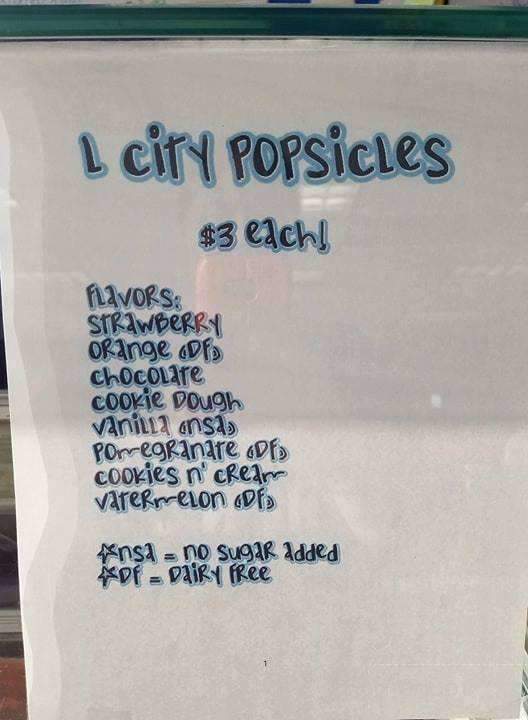 L CITY POPSICLES
$3 each!
FLAVORS:
STRAWBERRY
ORANGE (DF)
CHOCOLATE
COOKIE DOUGH
VANILLA (NSA)
POMEGRANATE (DF)
COOKIES N' CREAM
VATERMELON (DF)
☆NSA = NO SUGAR ADDED
☆DF = DAIRY FREE
1